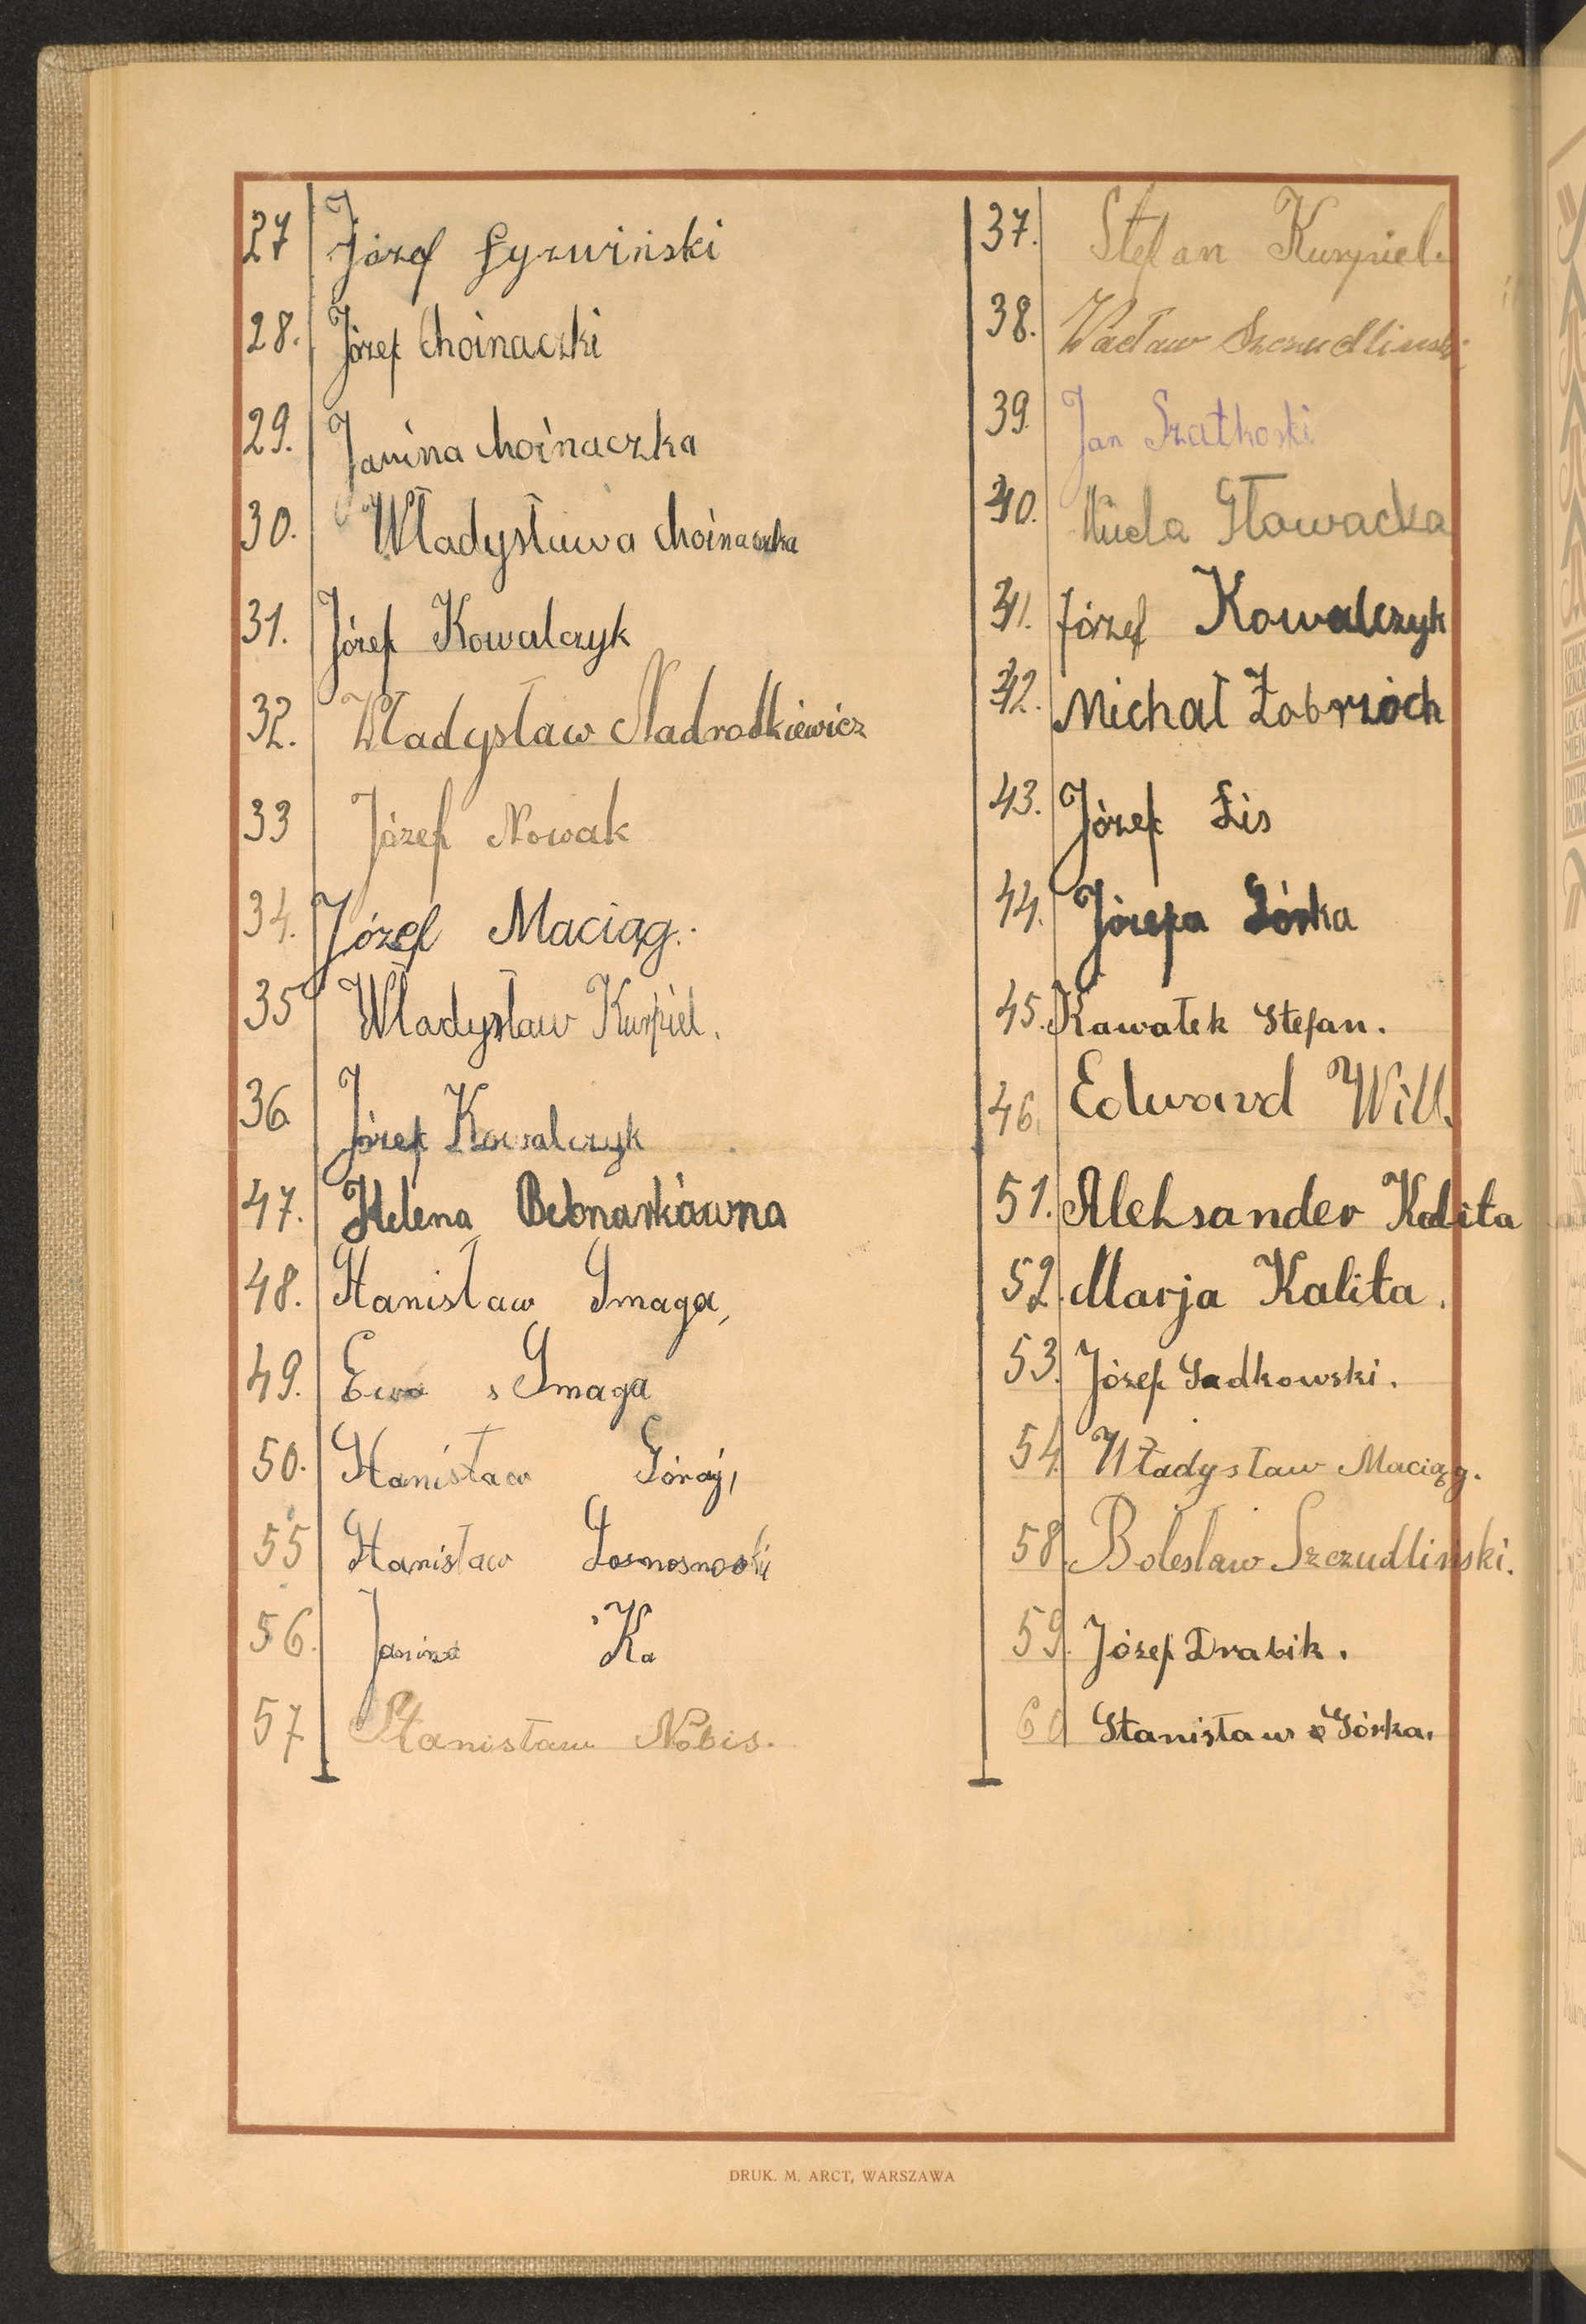 27 Józef Łyzwiński
28. Józef Choinaczki
29. Janina Choinaczka
30. Władysława Choinaczka
31. Józef Kowalczyk
32. Władysław Nadrodkiewicz
33 Józef Nowak
34. Józef Maciąg.
35 Władysław Kurpiel.
36 Józef Kowalczyk
37. Stefan Kurpiel.
38. Wacław Szczudlinski
39. Jan Szatkoski
40. Głowacka
41. Józef Kowalczyk
42. Michał Zobrzóch
43. Józef Lis
44. Józefa Górka
45. Kawałek Stefan.
46. Edward Will.
47. Helena Bednarkówna
48. Stanisław Smaga,
49. Ewa Smaga
50. Stanisław Góraj,
51. Aleksander Kalita
52. Marja Kalita.
53. Józef Sadkowski.
54. Władysław Maciąg.
55 Stanisław
56. Janina Ka
57 Stanisław Nobis.
58. Bolesław Szczudliński.
59. Józef Drabik.
60 Stanisław Górka.
DRUK. M. ARCT, WARSZAWA